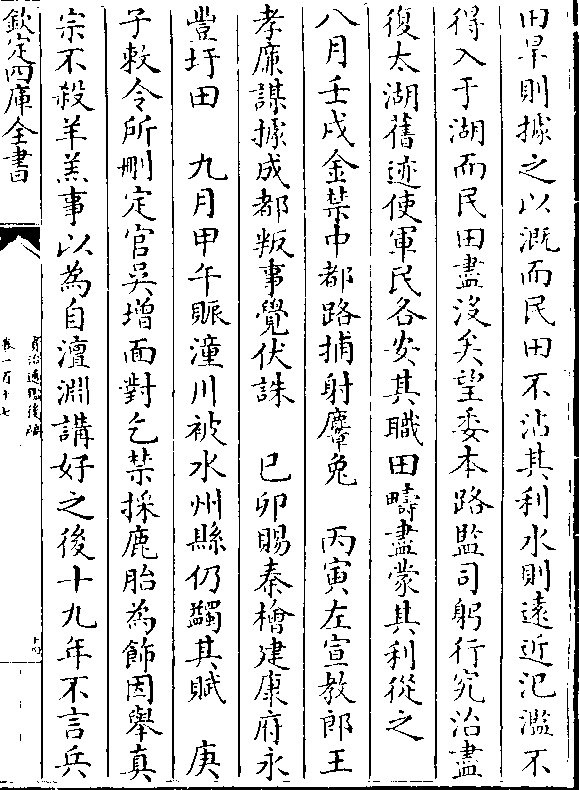 田旱則據之以溉而民田不沾其利水則遠近氾濫不
得入于湖而民田盡沒矣望委本路監司躬行究治盡
復太湖舊迹使軍民各安其職田疇盡蒙其利從之
八月壬戌金禁中都路捕射麞兔　丙寅左宣教郎王
孝廉謀據成都叛事覺伏誅　己卯賜秦檜建康府永
豐圩田　九月甲午賑潼川被水州縣仍蠲其賦　庚
子敕令所刪定官吳增面對乞禁採鹿胎為飾因舉真
宗不殺羊羔事以為自澶淵講好之後十九年不言兵
欽定四庫全書
資治通鑑後編
卷一百十七